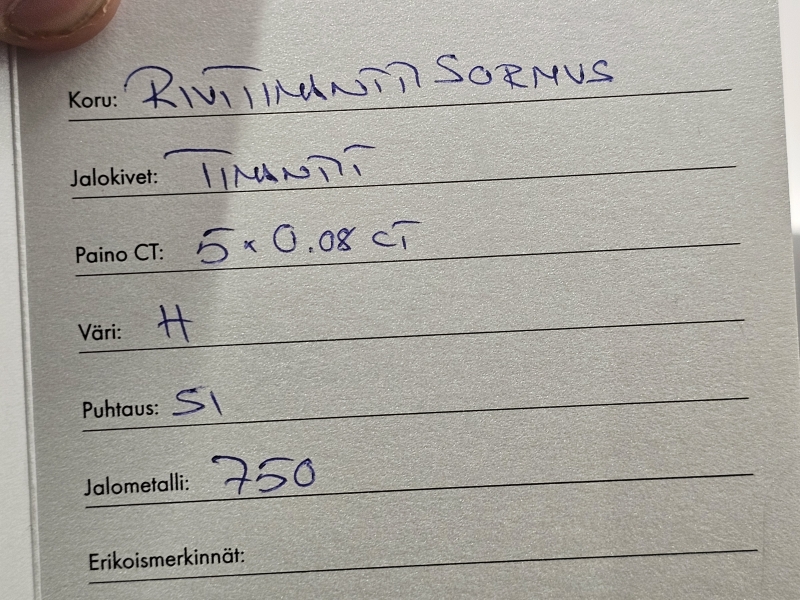 Koru: RIVITIMANTTI SORMUS
Jalokivet: TIMANTTI
Paino CT: 5 x 0.08 CT
Väri: H
Puhtaus: SI
Jalometalli: 750
Erikoismerkinnät: